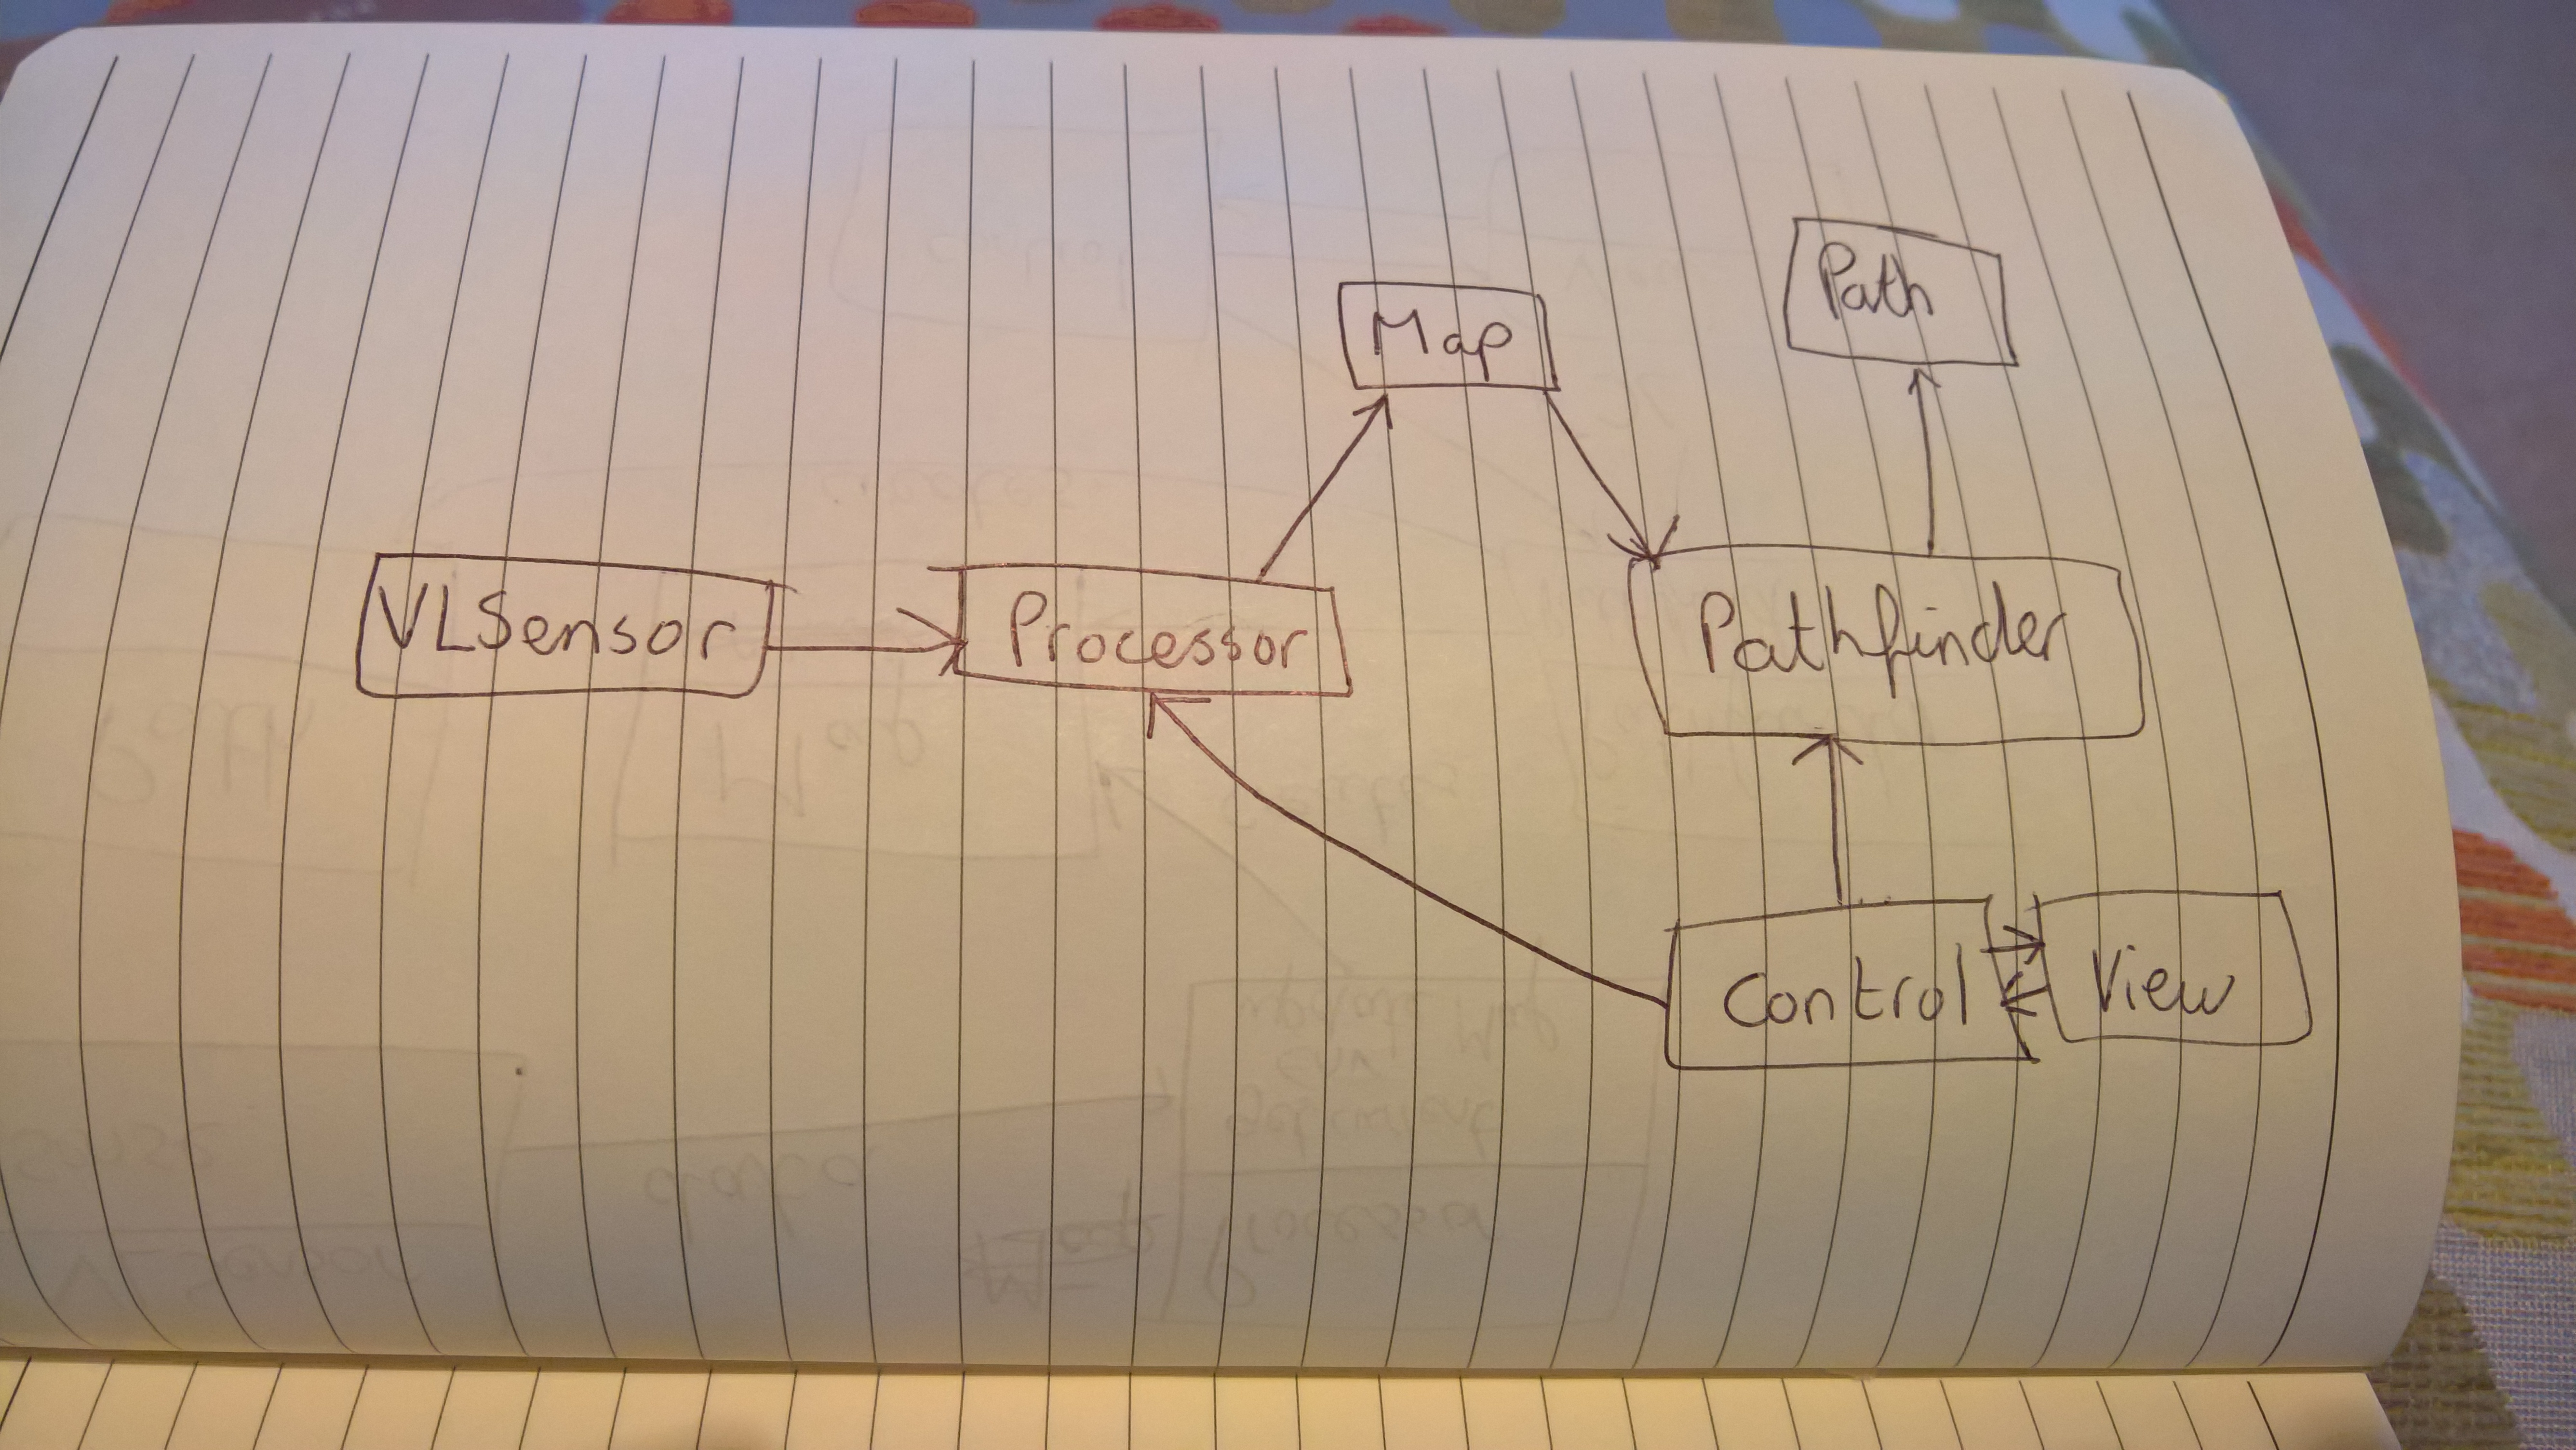 Path
Map
VLSensor
Processor
Pathfinder
Control
View